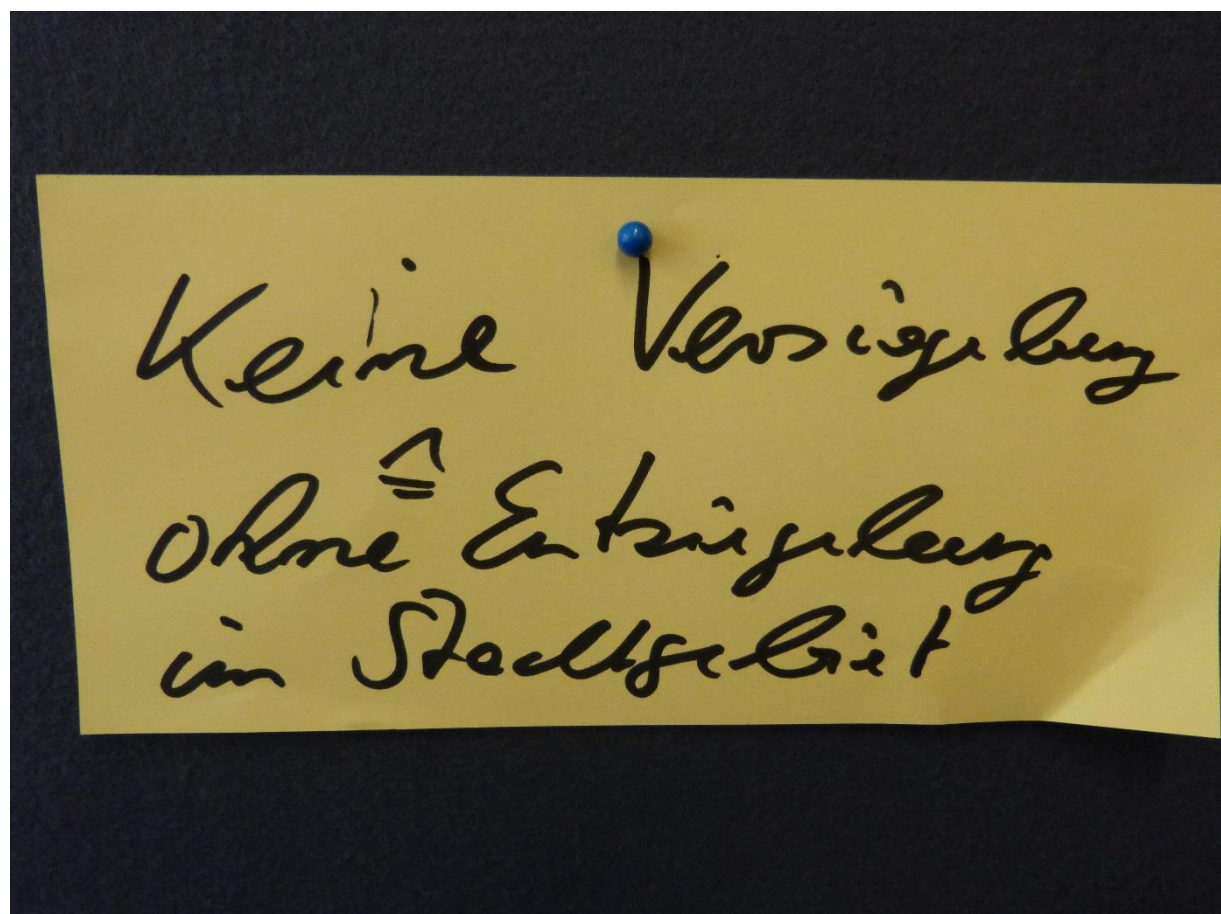 Keine Versiegelung
ohne ≙ Entsiegelung
im Stadtgebiet